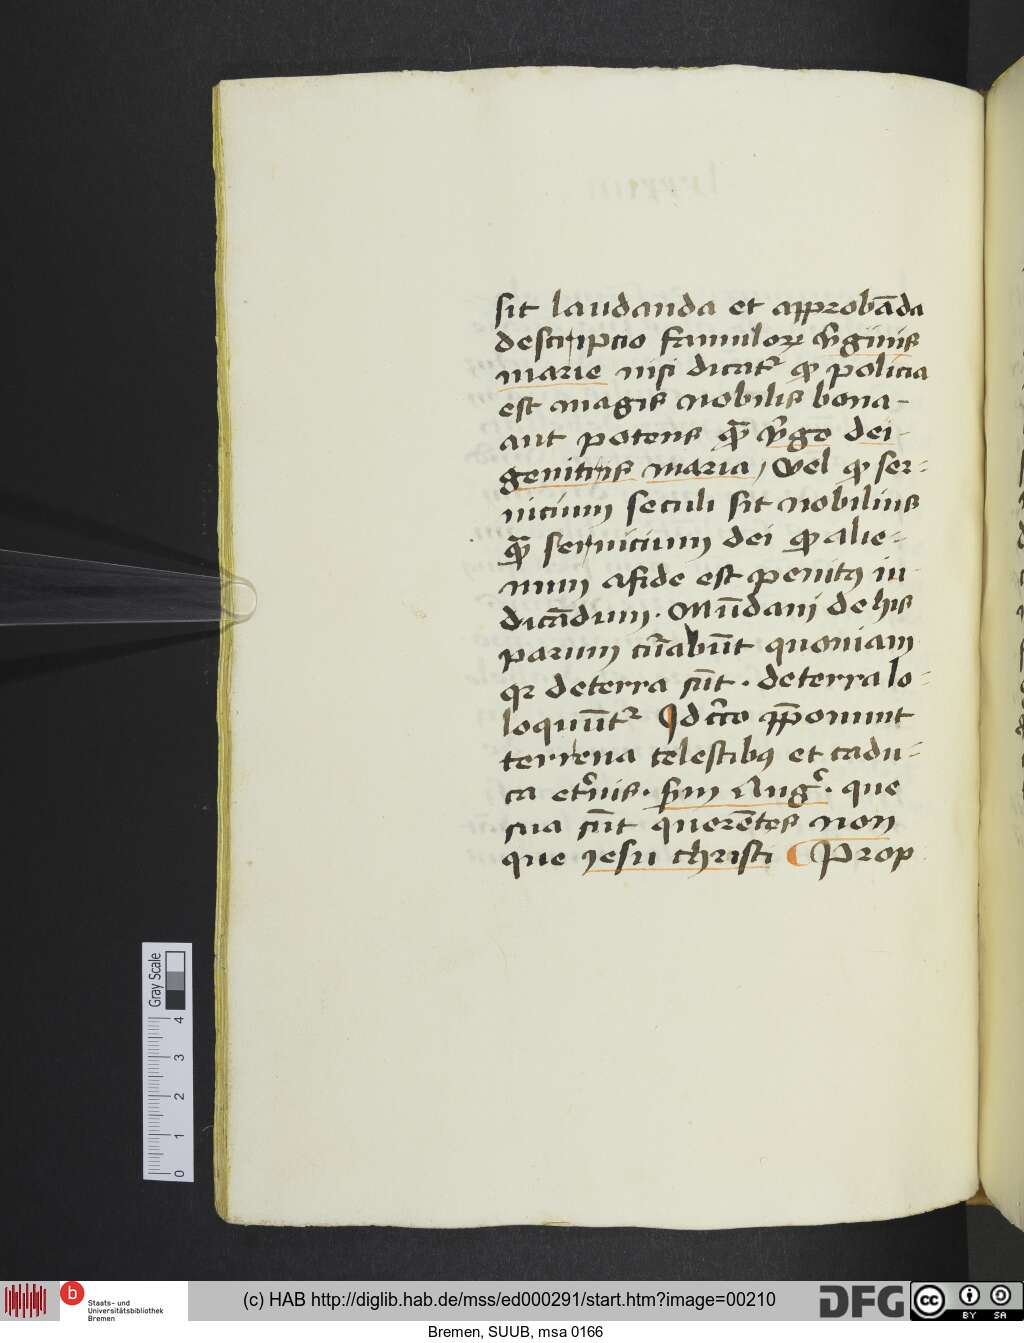 sit laudanda et approbāda
descripcio famulorꝝ v̓ginis
marie nisi dicatᷣ ꝙ policia
est magis nobilis bona-
aut potens qᷓ v̓go dei-
genitrix maria / Vel ꝙ ser-
uicium seculi sit nobilius
qᷓ seruicium dei ꝙ alie-
num afide est penitꝰ iu-
dicādum. Mūdani de his
parum cūrabūt quoniam
qꝛ deterra sūt. deterra lo-
loquūtᷣ Idcͥrco p̄ponunt
terrena celestibꝰ et cadu-
ca et̓nis. scḋm Aug̓. que
sua sūt querētes non
que iesu christi Prop
Gray Scale
0 1 2 3 4
b Staats- und
Universitätsbibliothek
Bremen
(c) HAB http://diglib.hab.de/mss/ed000291/start.htm?image=00210
DFG
cc BY SA
Bremen, SUUB, msa 0166